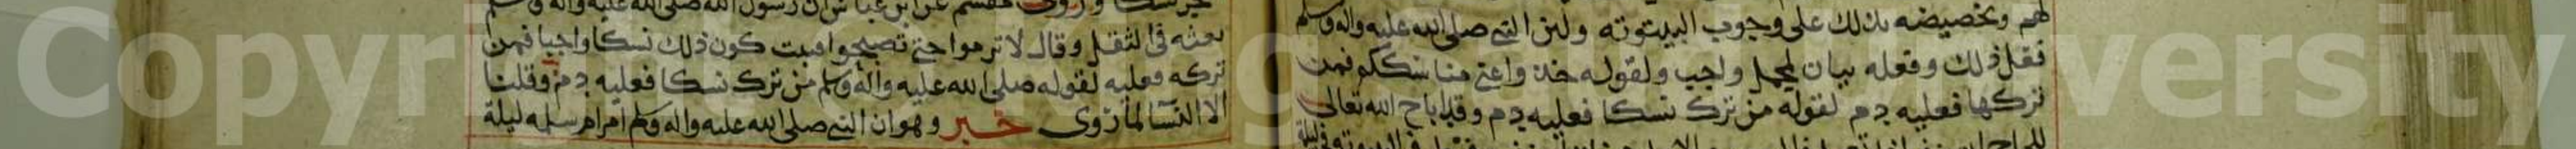 لهم وتخصيصه بذلك على وجوب البيتوته ولان النبي صلى الله عليه واله وسلم
فعل ذلك وفعله بيان لمجمل واجب ولقوله خذوا عني مناسككم فمن
تركها فعليه دم لقوله من ترك نسكا فعليه دم وقد اباح الله تعالى
خبر نسكا وروى مقسم عن ابن عباس ان رسول الله صلى الله عليه واله وسلم
بعثه في الثقل وقال لا ترموا حتى تصبحوا فبت كون ذلك نسكا واجبا فمن
تركه فعليه لقوله صلى الله عليه واله وسلم من ترك نسكا فعليه دم وقلنا
الا النسا لما روى خبر وهو ان النبي صلى الله عليه واله وسلم امر ام سلمه ليلة
Copyright versity